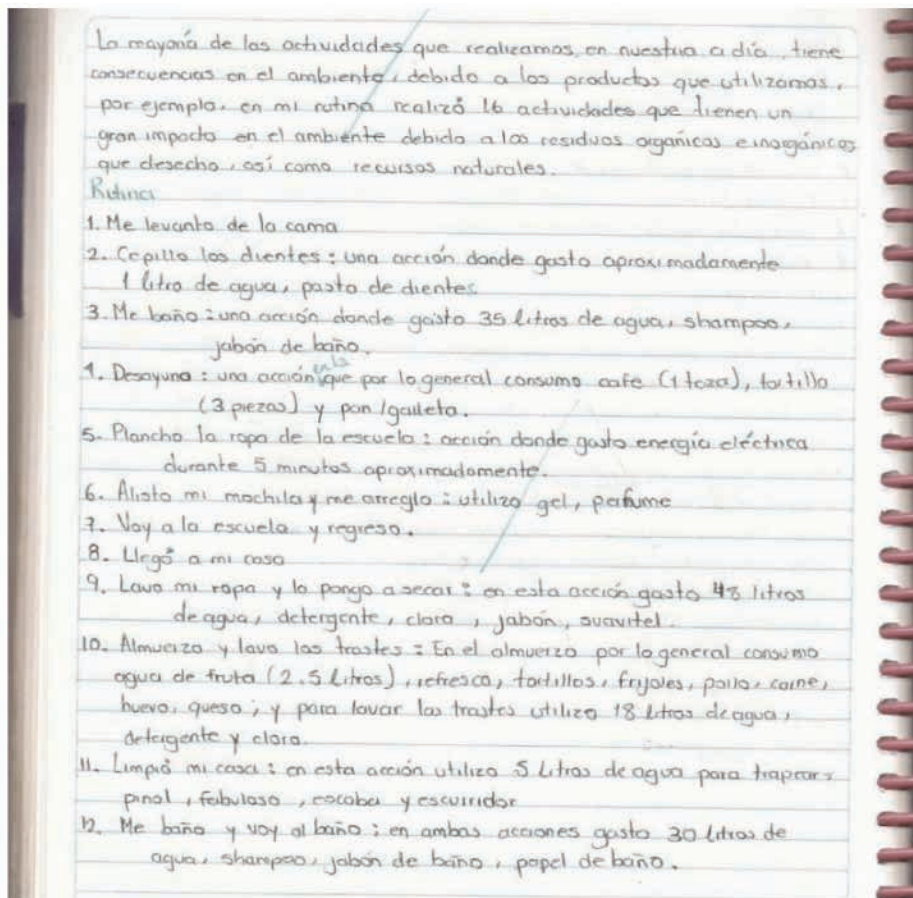 La mayoría de las actividades que realizamos en nuestra a día, tiene
consecuencias en el ambiente, debido a los productos que utilizamos,
por ejemplo, en mi rutina realizó 16 actividades que tienen un
gran impacto en el ambiente debido a los residuos orgánicos e inorgánicos
que desecho, así como recursos naturales.
Rutina
1. Me levanto de la cama
2. Cepillo los dientes: una acción donde gasto aproximadamente
1 litro de agua, pasta de dientes.
3. Me baño: una acción donde gasto 35 litros de agua, shampoo,
jabón de baño.
4. Desayuno: una acción en la que por lo general consumo cafe (1 taza), tortilla
(3 piezas) y pan/galleta.
5. Plancho la ropa de la escuela: acción donde gasto energía eléctrica
durante 5 minutos aproximadamente.
6. Alisto mi mochila y me arreglo: utilizo gel, perfume
7. Voy a la escuela y regreso.
8. Llegó a mi casa
9. Lavo mi ropa y la pongo a secar: en esta acción gasto 48 litros
de agua, detergente, cloro, jabón, suavitel.
10. Almuerzo y lavo los trastes: En el almuerzo por lo general consumo
agua de fruta (2.5 Litros), refresco, tortillas, frijoles, pollo, carne,
huevo, queso; y para lavar los trastes utilizo 18 litros de agua,
detergente y cloro.
11. Limpió mi casa: en esta acción utilizo 5 Litros de agua para trapear,
pinol, fabuloso, escoba y escurridor
12. Me baño y voy al baño: en ambas acciones gasto 30 litros de
agua, shampoo, jabón de baño, papel de baño.